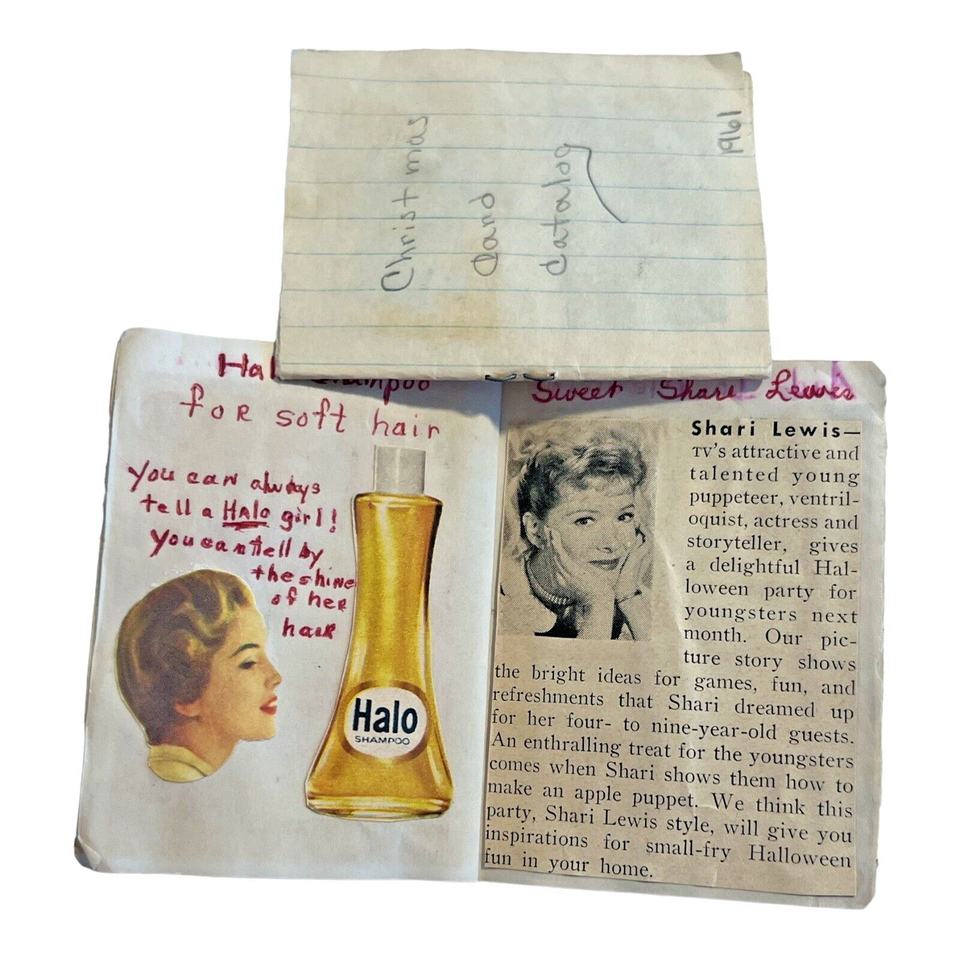 Christmas
Card
Catalog
1961
Halo Shampoo
for soft hair
You can always
tell a Halo girl!
You can tell by
the shine
of her
hair
Halo
SHAMPOO
Sweet Shari Leaves
Shari Lewis—
TV's attractive and
talented young
puppeteer, ventril-
oquist, actress and
storyteller, gives
a delightful Hal-
loween party for
youngsters next
month. Our pic-
ture story shows
the bright ideas for games, fun, and
refreshments that Shari dreamed up
for her four- to nine-year-old guests.
An enthralling treat for the youngsters
comes when Shari shows them how to
make an apple puppet. We think this
party, Shari Lewis style, will give you
inspirations for small-fry Halloween
fun in your home.